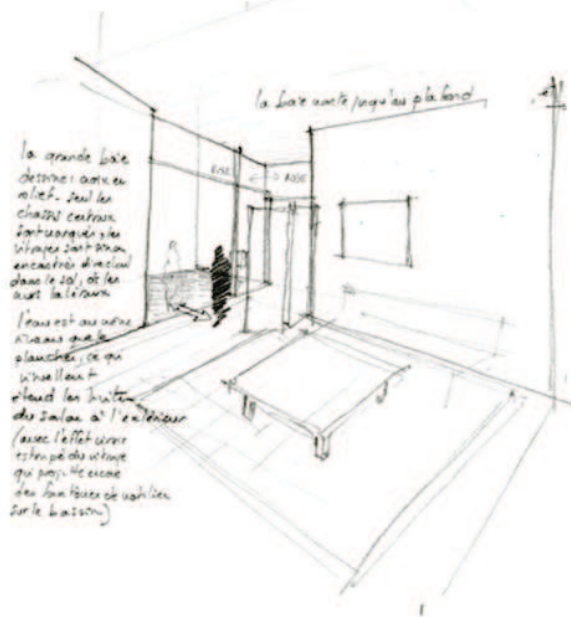 la baie monte jusqu'au plafond
ROSE ROSE
la grande baie
dessine: croix en
relief. seul les
chassis centraux
sont marqués, les
vitrages sont sinon
encastrés direct
dans le sol, et les
murs latéraux
l'eau est au même
niveau que le
plancher, ce qui
étend les limites
du salon à l'extérieur
(avec l'effet miroir
estompé du vitrage
qui projette encore
des fantômes de mobilier
sur le bassin)